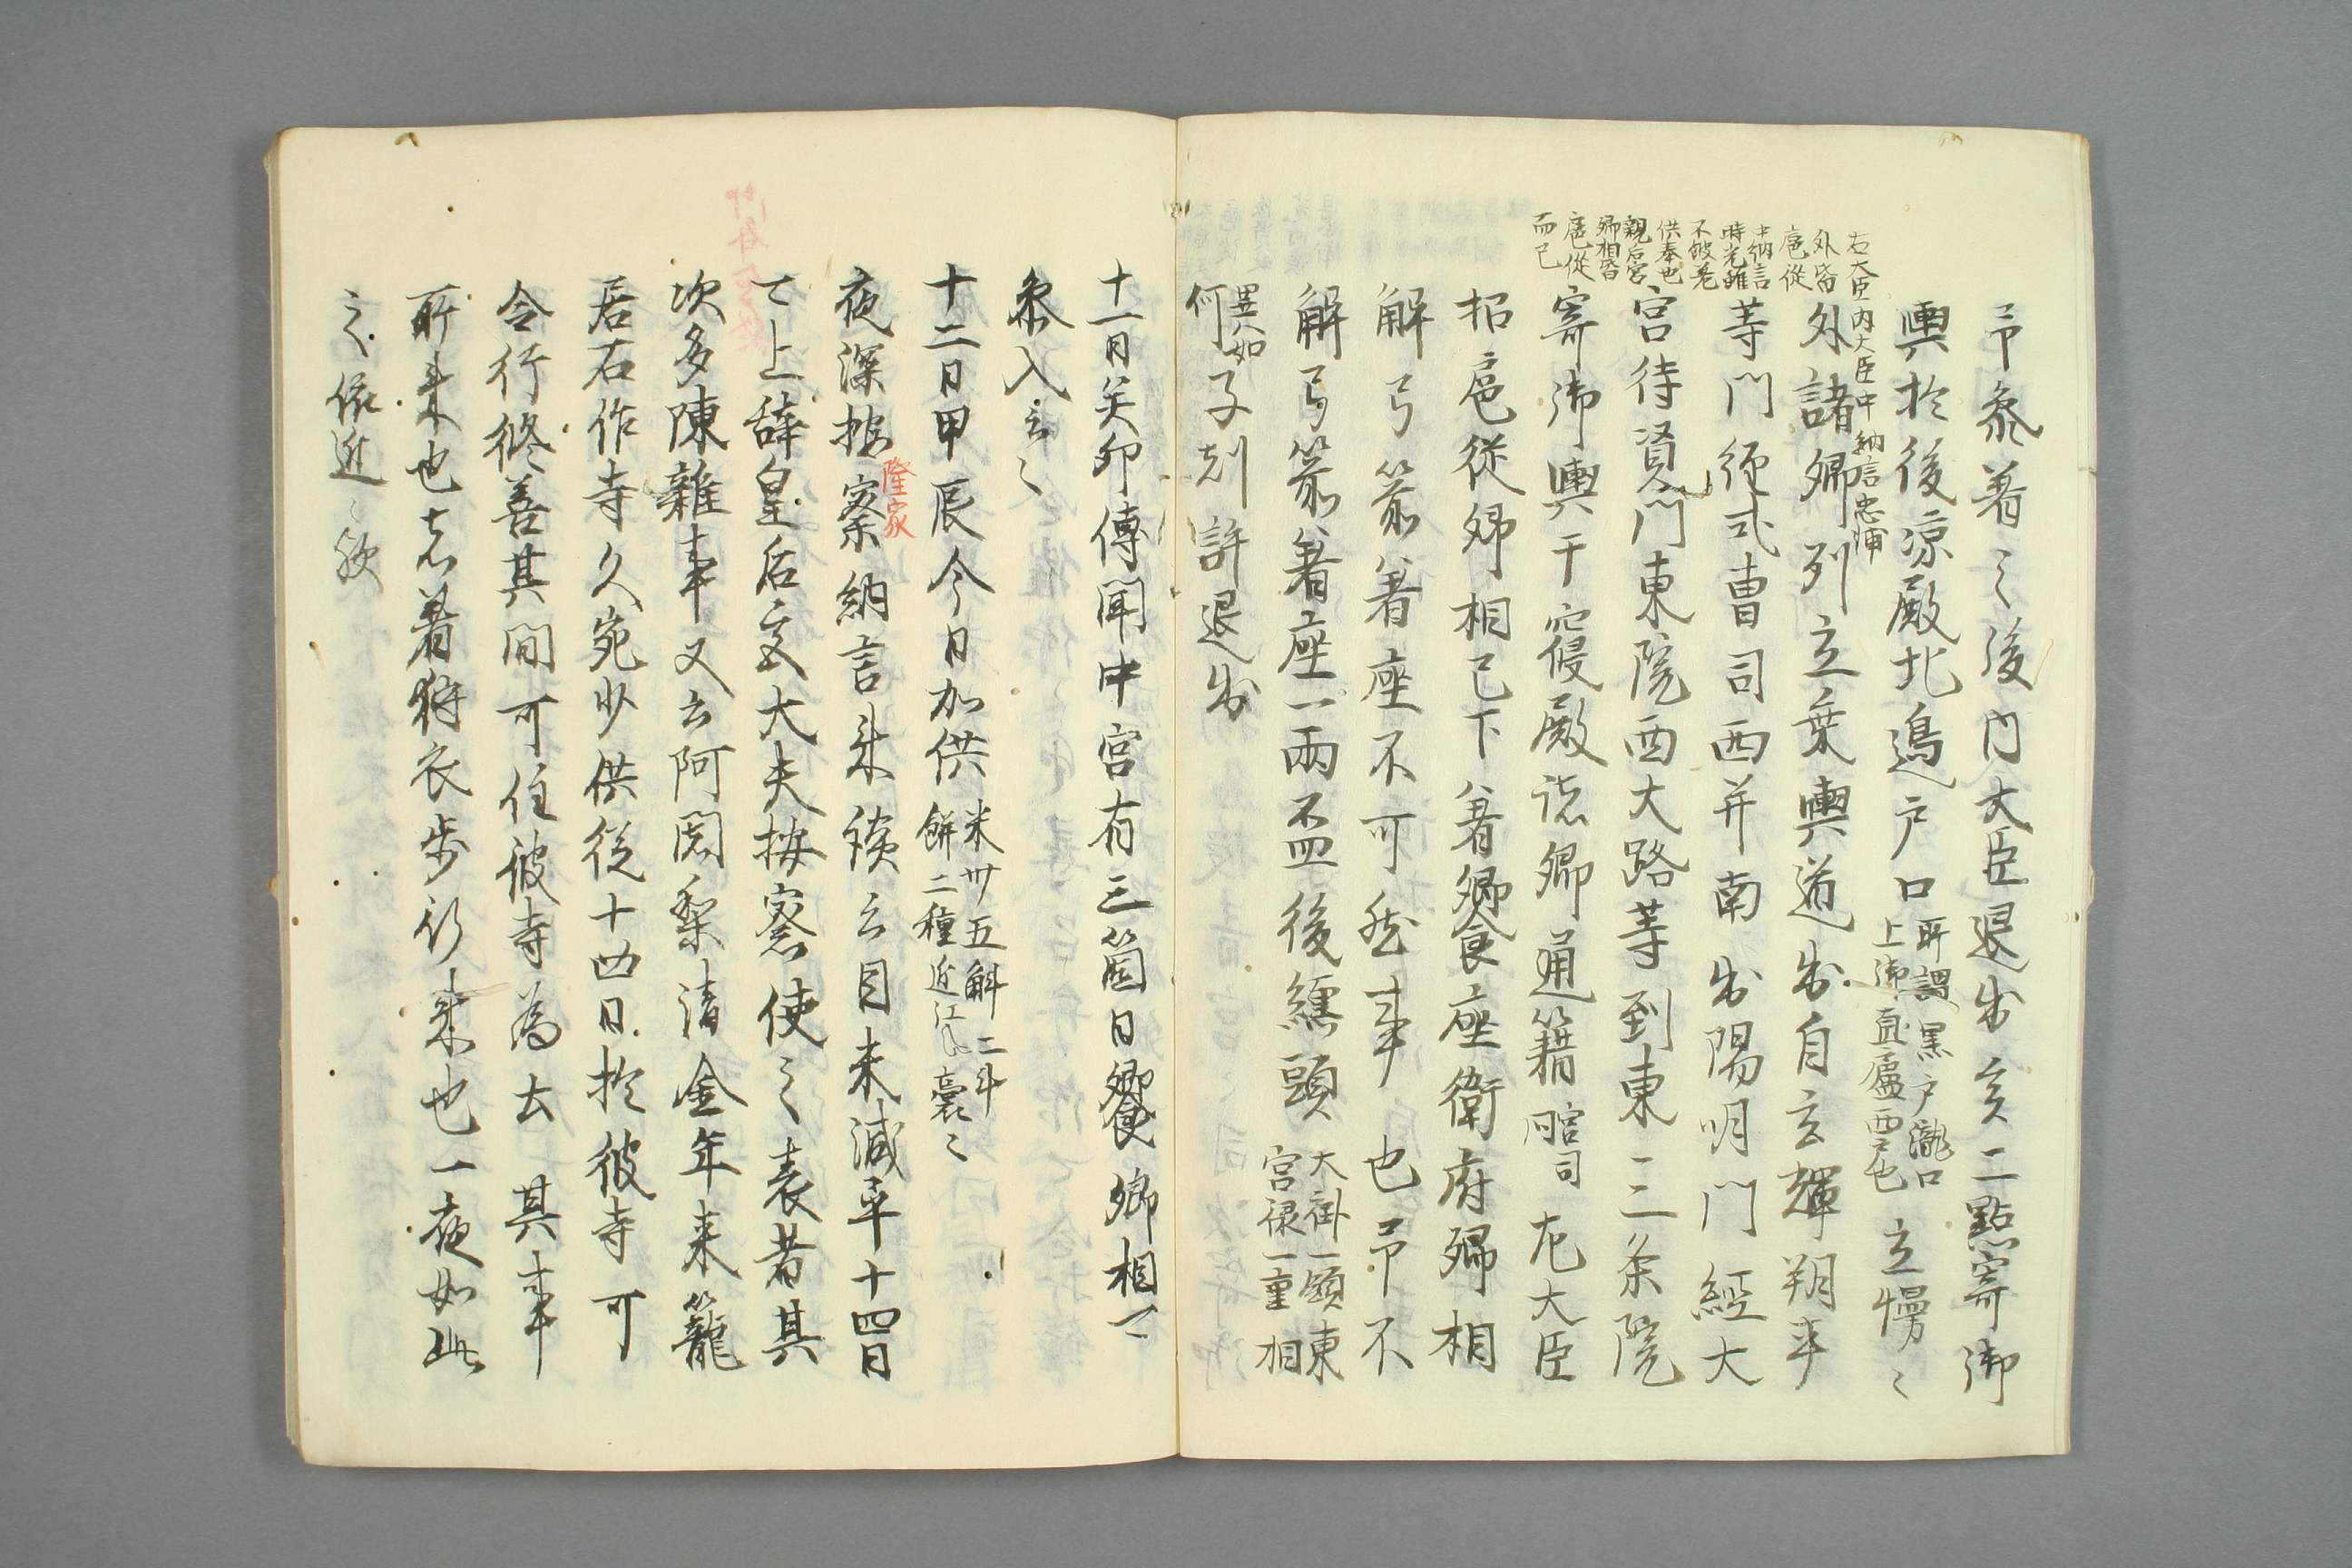 右大臣内大臣中納言忠輔
外皆
扈從
中納言
時光雖
不皷着
供奉也
親后宮
卿相皆
扈從
而已
予參着之後内大臣退出亥二點寄御
輿於後涼殿北邊戸口所謂黒戸瀧口
上御直廬西戸也立幔々
外諸卿列立乗輿道出自玄輝朔平
等門經式曹司西并南出陽明門經大
宮待賢門東院西大路等到東三条院
寄御輿于寢殿諸卿通籍宮司左大臣
招扈從卿相已下着饗座衛府卿相
解弓箭着座不可然事也予不
解弓箭着座一兩盃後纏頭大褂一領東
宮禄一重相
異如
何子刻許退出
十一月癸卯傳聞中宮有三箇日饗卿相下
參入云々
十二日甲辰今日加供米卅五斛二斗
餅二種近江袋々
夜深按察納言来談云目来減平十四日
隆家
て上辞皇后宮大夫按察使之表者其
次多陳雜事又云阿闍梨清金年来籠
居石作寺久宛少供從十四日於彼寺可
令行修善其間可住彼寺為去其事
所来也志着狩衣歩行来也一夜如此
之依近々歟